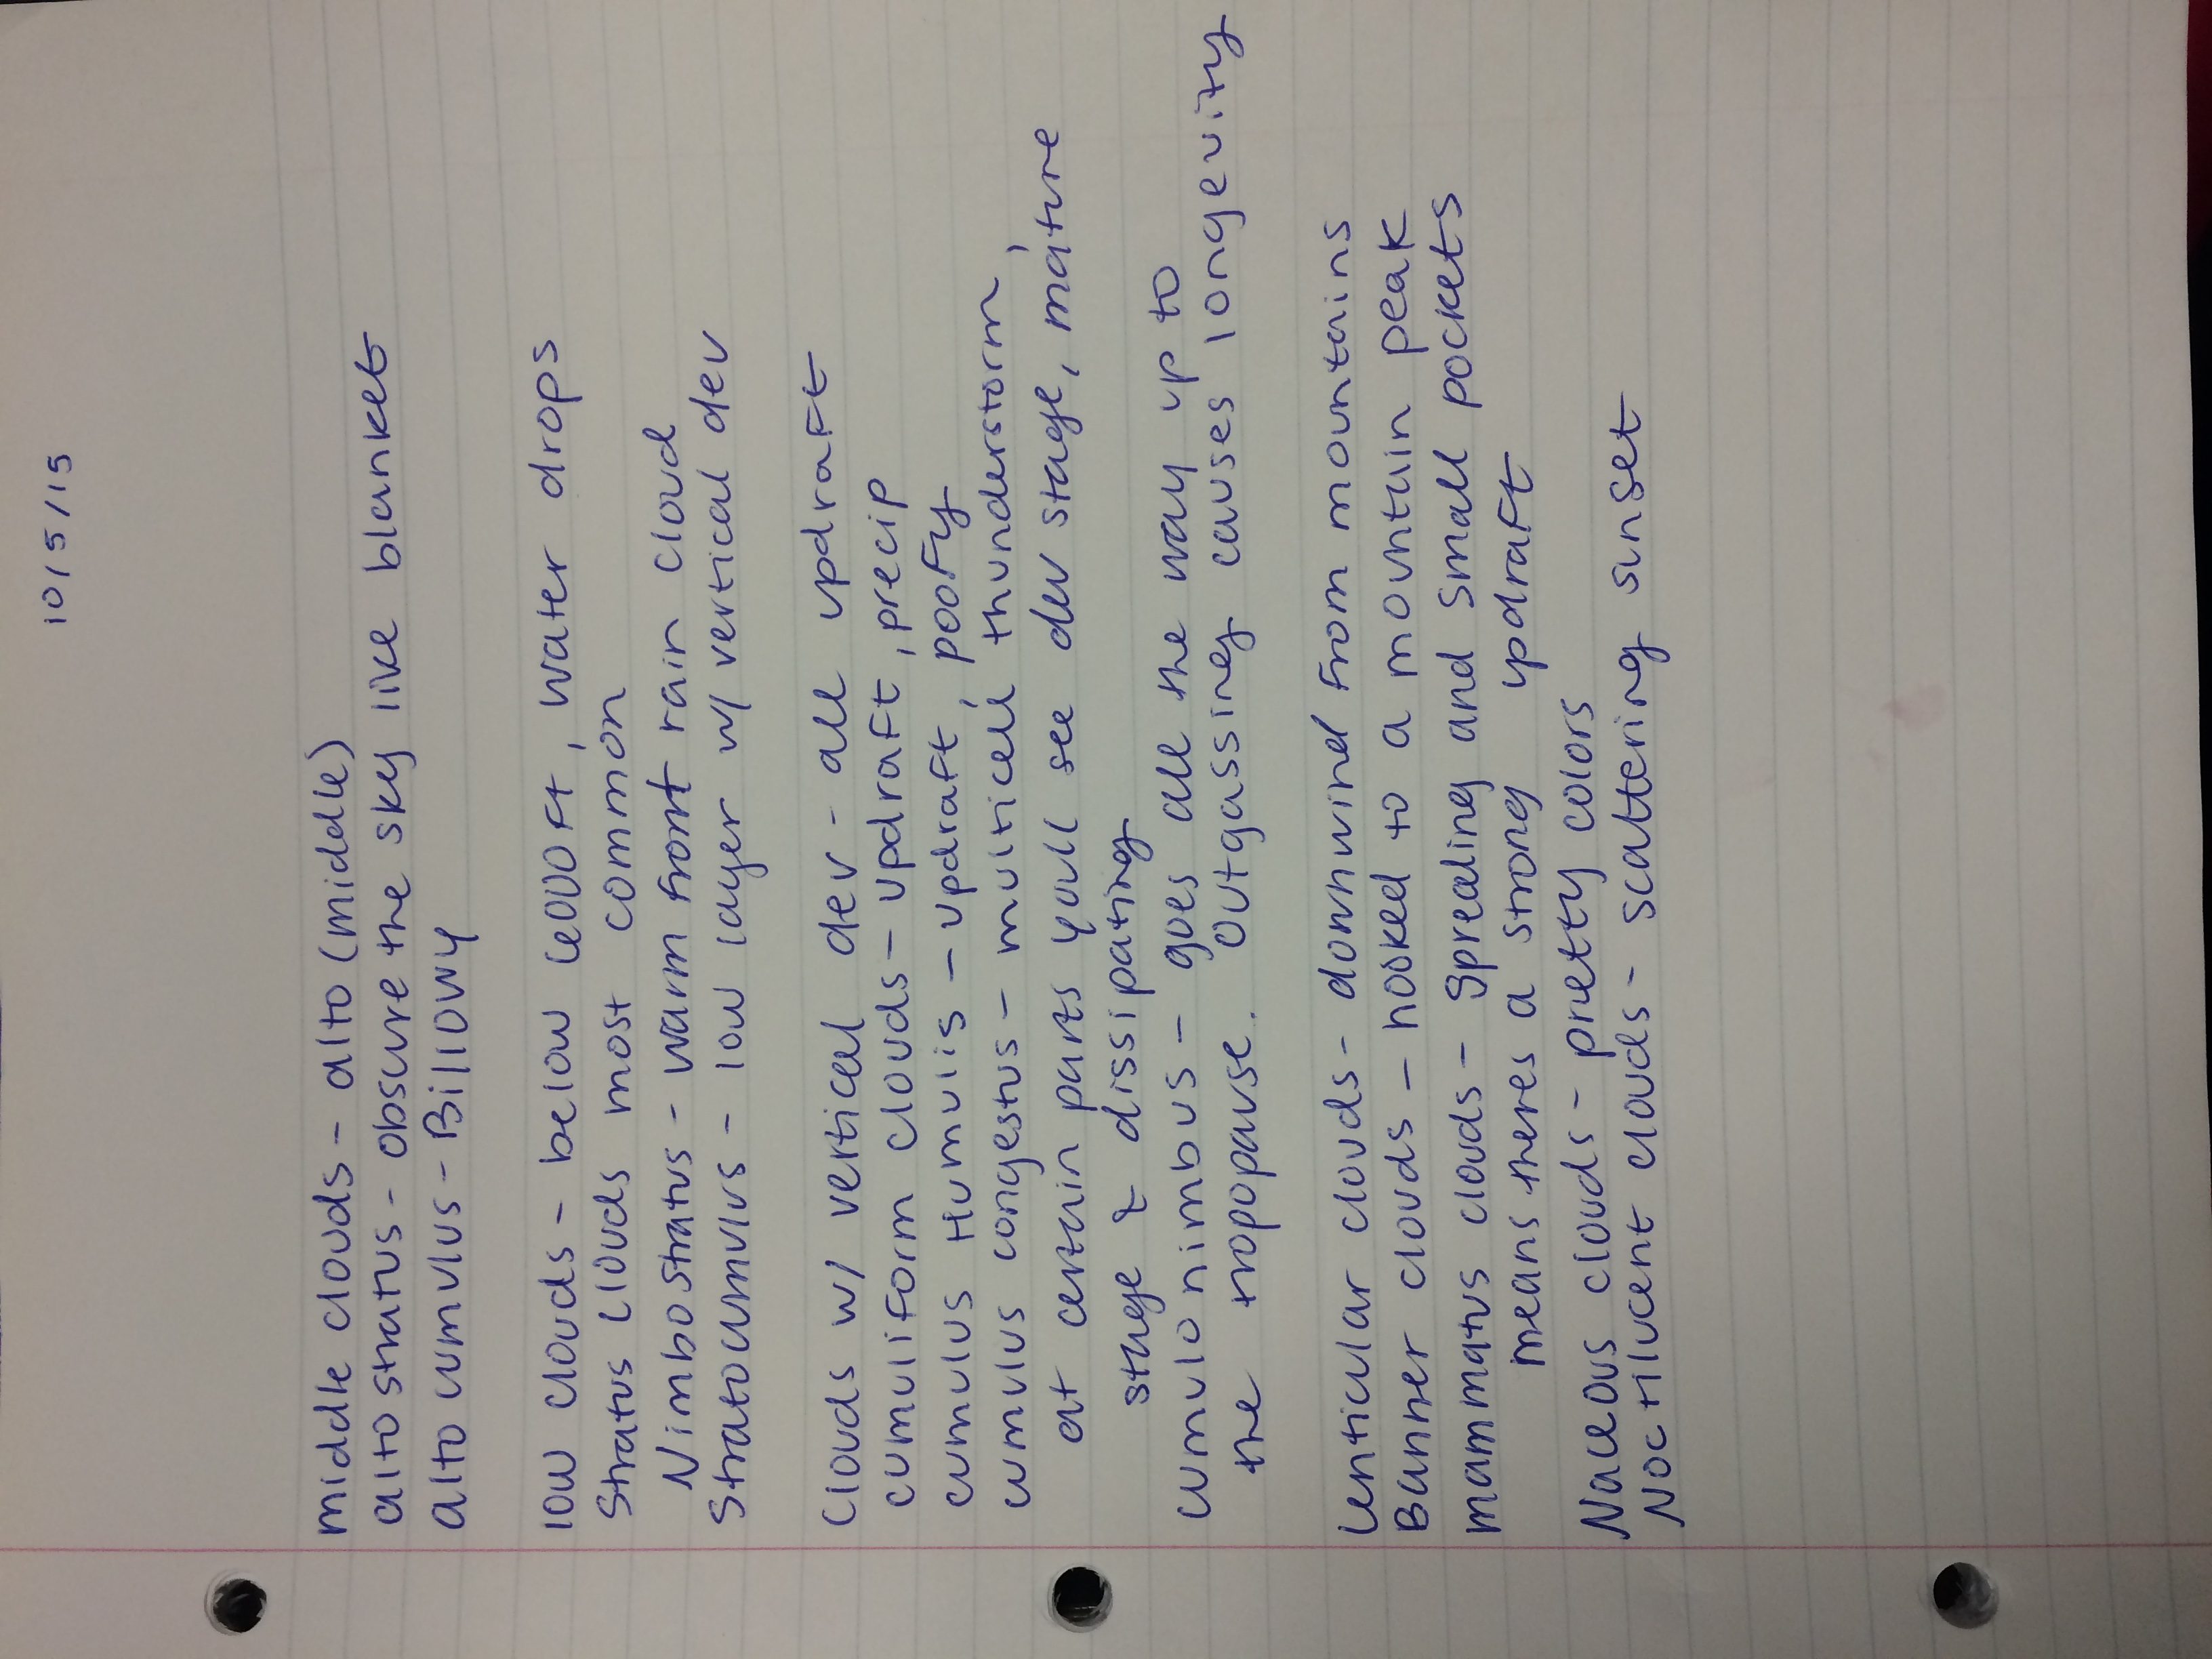 10/5/15
middle clouds - alto (middle)
alto stratus - obscure the sky like blanket
alto cumulus - Billowy
low clouds - below 6000Ft, water drops
Stratus clouds most common
Nimbostratus - warm front rain cloud
Stratocumulus - low layer w/ vertical dev
Clouds w/ vertical dev - all updraft
cumuliform clouds - updraft, precip
cumulus Humulis - updraft, poofy
cumulus congestus - multicell thunderstorm,
at certain parts youll see dev stage, mature
stage & dissipating
cumulonimbus - goes all the way up to
the tropopause. Outgassing causes longevity
Lenticular clouds - downwind from mountains
Banner clouds - hooked to a mountain peak
mammatus clouds - Spreading and small pockets
means theres a strong updraft
Naceous clouds - pretty colors
Noctilucent clouds - scattering sunset